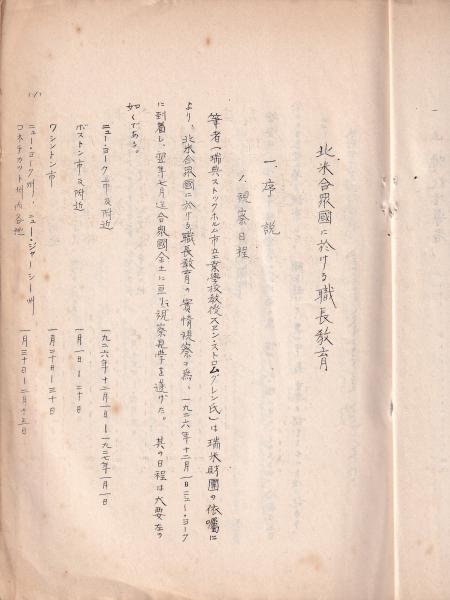 北米合衆國に於ける職長教育
一、序説
1. 視察日程
筆者(瑞典ストックホルム市立工業學校教授スヱン・ストロムグレン氏)は瑞米財團の依囑に
より、北米合衆國に於ける職長教育の實情視察の為、一九二六年十二月一日ニュー・ヨーク
に到着し、翌年七月迄合衆國全土に亘り視察見學を遂げた。其の日程は大要左の
如くである。
ニュー・ヨーク市及附近 一九二六年十二月一日―一九二七年一月一日
ボストン市及附近 一月一日―二十日
ワシントン市 一月二十日―三十日
ニュー・ヨーク州、ニュー・ジャーシー州
コネチカット州内各地 一月三十日―二月十五日
(1)